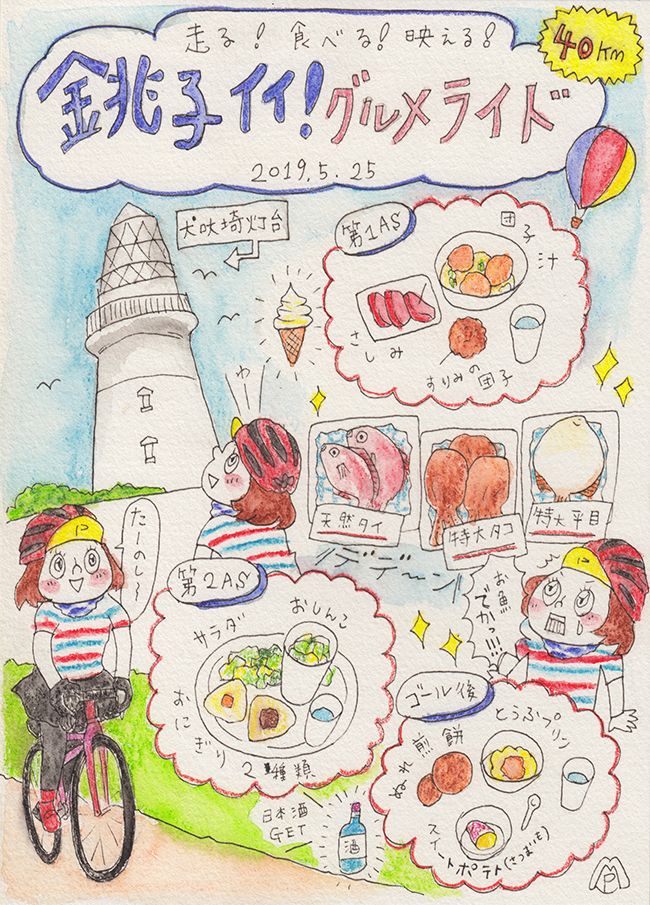 走る！食べる！映える！
40km
銚子イイ！グルメライド
2019.5.25
犬吠埼灯台
第1AS
団子汁
さしみ
すりみの団子
天然タイ
特大タコ
特大平目
デデーン
たーのし〜
第2AS
サラダ
おしんこ
おにぎり2種類
お魚
でかっ!!!
ゴール後
とうふプリン
ぬれ煎餅
スイートポテト(さつまいも)
日本酒
GET
酒